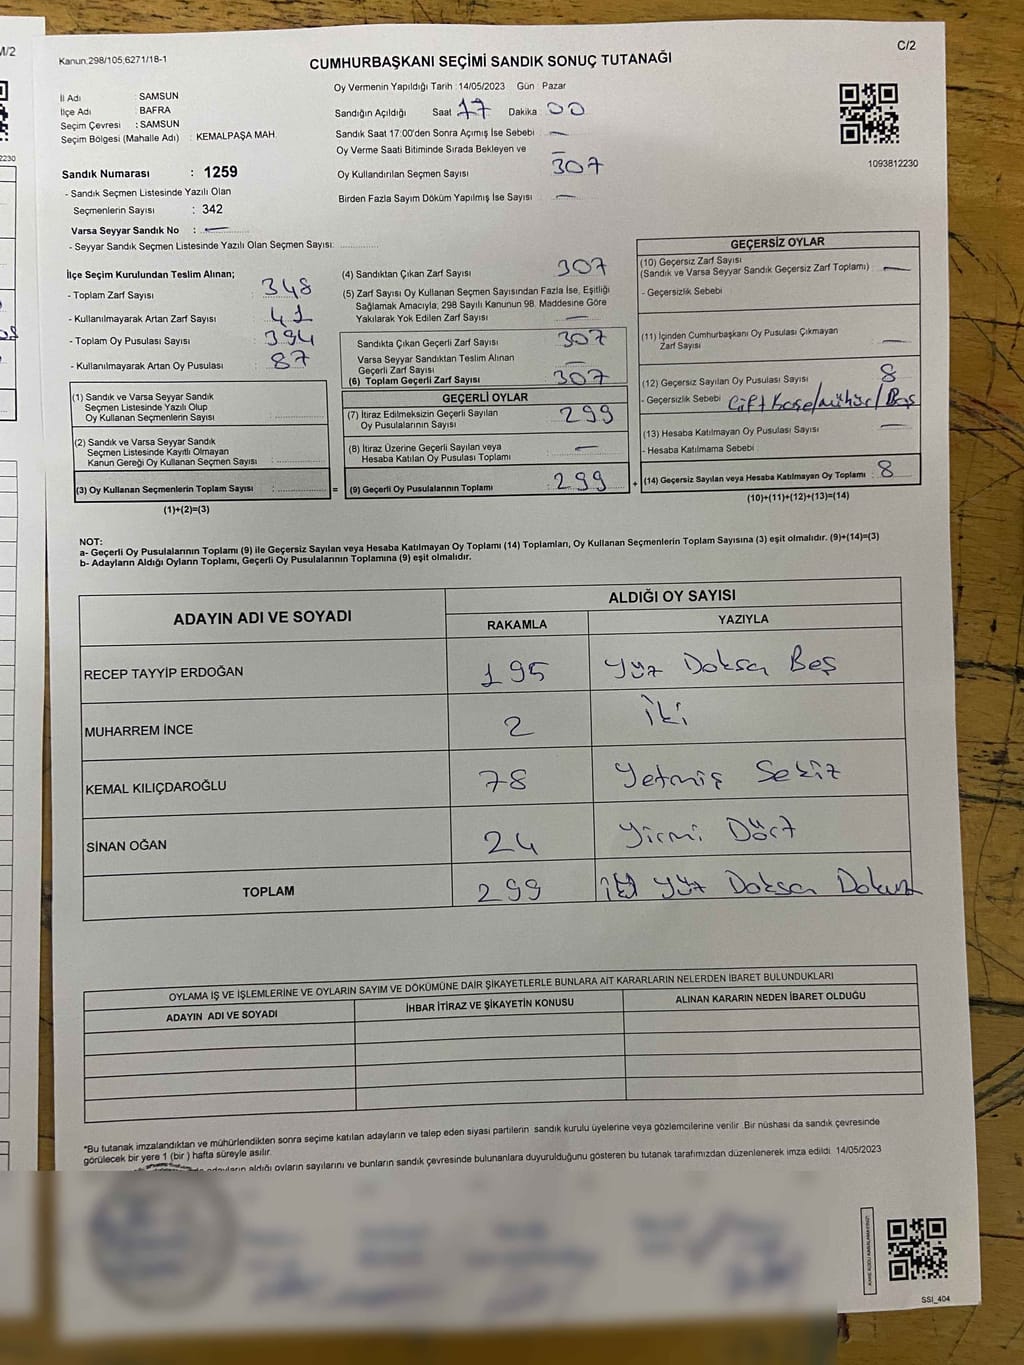 M/2
Kanun.298/105,6271/18-1
CUMHURBAŞKANI SEÇİMİ SANDIK SONUÇ TUTANAĞI
C/2
İl Adı : SAMSUN
İlçe Adı : BAFRA
Seçim Çevresi : SAMSUN
Seçim Bölgesi (Mahalle Adı) : KEMALPAŞA MAH.
Sandık Numarası : 1259
- Sandık Seçmen Listesinde Yazılı Olan
Seçmenlerin Sayısı : 342
Varsa Seyyar Sandık No : —
- Seyyar Sandık Seçmen Listesinde Yazılı Olan Seçmen Sayısı: ............
Oy Vermenin Yapıldığı Tarih : 14/05/2023 Gün : Pazar
Sandığın Açıldığı Saat 17 Dakika : 00
Sandık Saat 17:00'den Sonra Açımış İse Sebebi : —
Oy Verme Saati Bitiminde Sırada Bekleyen ve —
Oy Kullandırılan Seçmen Sayısı 307
Birden Fazla Sayım Döküm Yapılmış İse Sayısı : —
1093812230
2230
İlçe Seçim Kurulundan Teslim Alınan;
- Toplam Zarf Sayısı : 348
- Kullanılmayarak Artan Zarf Sayısı : 41
- Toplam Oy Pusulası Sayısı : 394
- Kullanılmayarak Artan Oy Pusulası : 87
(1) Sandık ve Varsa Seyyar Sandık
Seçmen Listesinde Yazılı Olup
Oy Kullanan Seçmenlerin Sayısı : ............
(2) Sandık ve Varsa Seyyar Sandık
Seçmen Listesinde Kayıtlı Olmayan
Kanun Gereği Oy Kullanan Seçmen Sayısı : ............
(3) Oy Kullanan Seçmenlerin Toplam Sayısı : ............ =
(1)+(2)=(3)
(4) Sandıktan Çıkan Zarf Sayısı : 307
(5) Zarf Sayısı Oy Kullanan Seçmen Sayısından Fazla İse, Eşitliği
Sağlamak Amacıyla, 298 Sayılı Kanunun 98. Maddesine Göre
Yakılarak Yok Edilen Zarf Sayısı : —
Sandıkta Çıkan Geçerli Zarf Sayısı : 307
Varsa Seyyar Sandıktan Teslim Alınan
Geçerli Zarf Sayısı : —
(6) Toplam Geçerli Zarf Sayısı : 307
GEÇERLİ OYLAR
(7) İtiraz Edilmeksizin Geçerli Sayılan
Oy Pusulalarının Sayısı : 299
(8) İtiraz Üzerine Geçerli Sayılan veya
Hesaba Katılan Oy Pusulası Toplamı : —
(9) Geçerli Oy Pusulalarının Toplamı : 299 +
GEÇERSİZ OYLAR
(10) Geçersiz Zarf Sayısı
(Sandık ve Varsa Seyyar Sandık Geçersiz Zarf Toplamı) : —
- Geçersizlik Sebebi :
(11) İçinden Cumhurbaşkanı Oy Pusulası Çıkmayan
Zarf Sayısı : —
(12) Geçersiz Sayılan Oy Pusulası Sayısı : 8
- Geçersizlik Sebebi : Çift Kaşe/mühür/Boş
(13) Hesaba Katılmayan Oy Pusulası Sayısı : —
- Hesaba Katılmama Sebebi :
(14) Geçersiz Sayılan veya Hesaba Katılmayan Oy Toplamı : 8
(10)+(11)+(12)+(13)=(14)
NOT:
a- Geçerli Oy Pusulalarının Toplamı (9) ile Geçersiz Sayılan veya Hesaba Katılmayan Oy Toplamı (14) Toplamları, Oy Kullanan Seçmenlerin Toplam Sayısına (3) eşit olmalıdır. (9)+(14)=(3)
b- Adayların Aldığı Oyların Toplamı, Geçerli Oy Pusulalarının Toplamına (9) eşit olmalıdır.
ADAYIN ADI VE SOYADI
ALDIĞI OY SAYISI
RAKAMLA YAZIYLA
RECEP TAYYİP ERDOĞAN 195 Yüz Doksan Beş
MUHARREM İNCE 2 İki
KEMAL KILIÇDAROĞLU 78 Yetmiş Sekiz
SİNAN OĞAN 24 Yirmi Dört
TOPLAM 299 İki Yüz Doksan Dokuz
OYLAMA İŞ VE İŞLEMLERİNE VE OYLARIN SAYIM VE DÖKÜMÜNE DAİR ŞİKAYETLERLE BUNLARA AİT KARARLARIN NELERDEN İBARET BULUNDUKLARI
ADAYIN ADI VE SOYADI İHBAR İTİRAZ VE ŞİKAYETİN KONUSU ALINAN KARARIN NEDEN İBARET OLDUĞU
*Bu tutanak imzalandıktan ve mühürlendikten sonra seçime katılan adayların ve talep eden siyasi partilerin sandık kurulu üyelerine veya gözlemcilerine verilir. Bir nüshası da sandık çevresinde
görülecek bir yere 1 (bir ) hafta süreyle asılır.
adayların aldığı oyların sayılarını ve bunların sandık çevresinde bulunanlara duyurulduğunu gösteren bu tutanak tarafımızdan düzenlenerek imza edildi. 14/05/2023
SSI_404